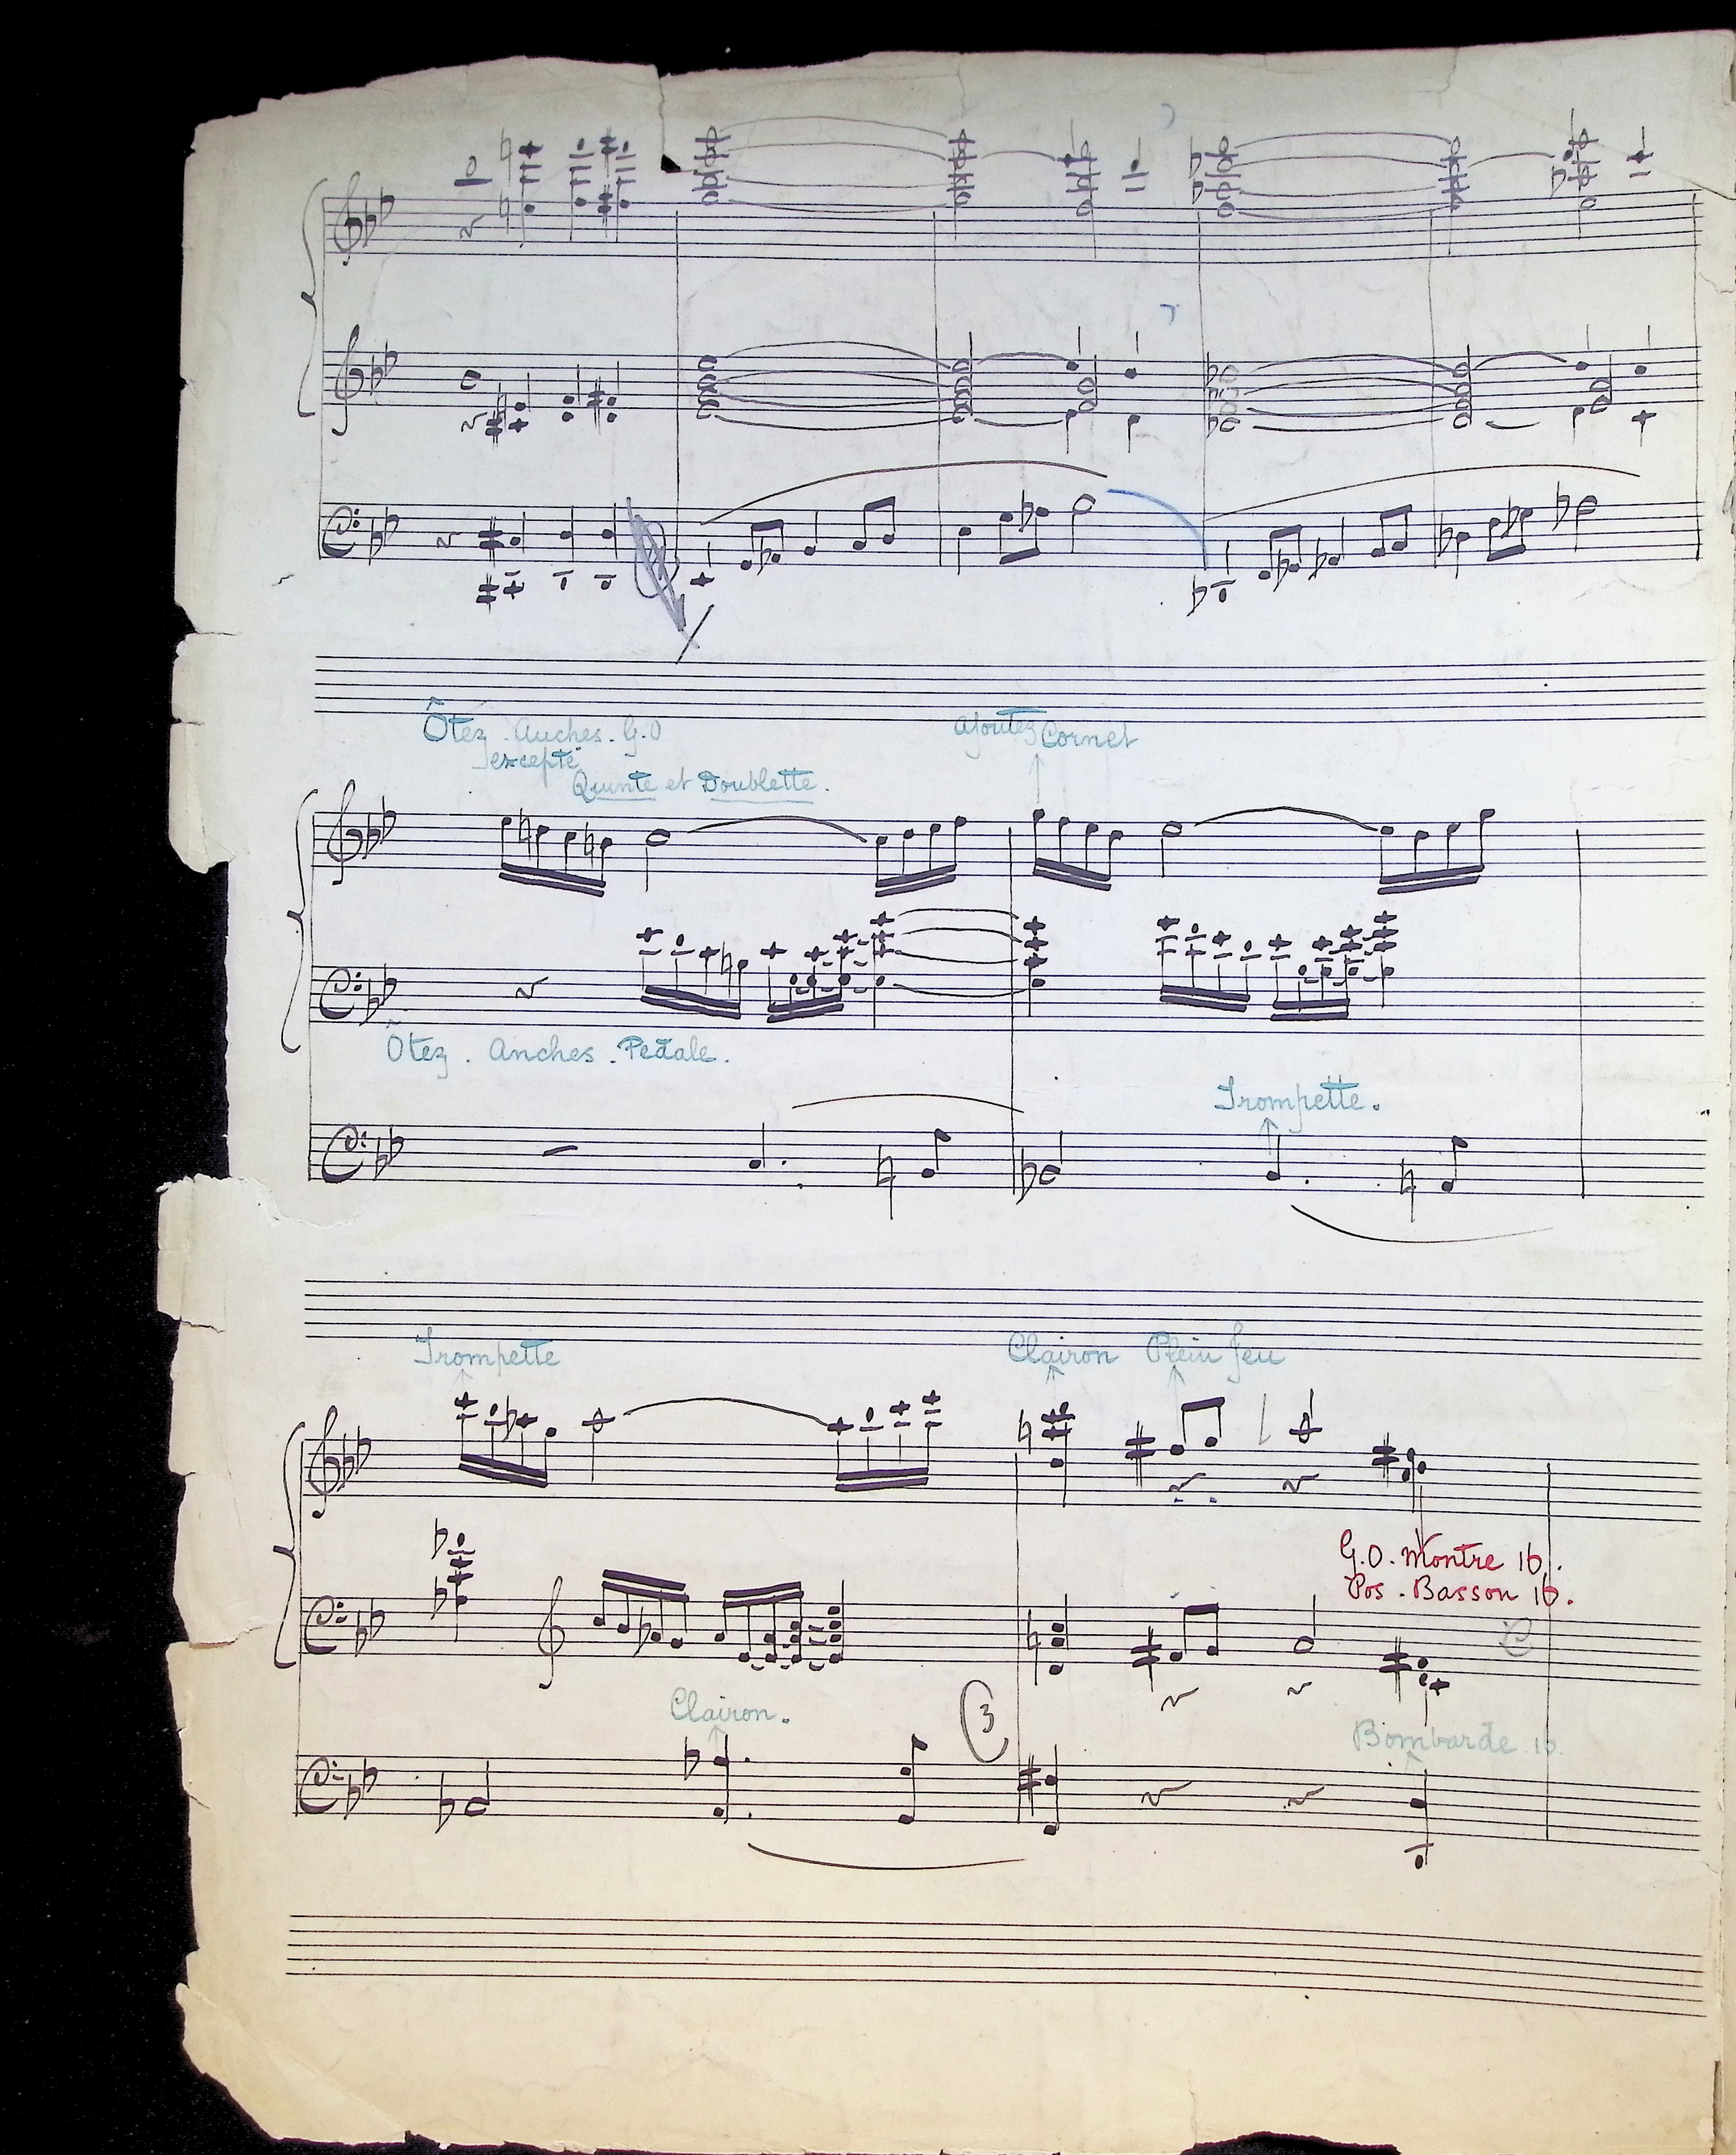 Ôtez. Anches. G.O
excepté
Quinte et Doublette.
ajoutez Cornet
Ôtez. Anches. Pedale.
Trompette.
Trompette
Clairon Plein Jeu
G.O. Montre 16.
Pos. Basson 16.
Clairon.
3
Bombarde 16.